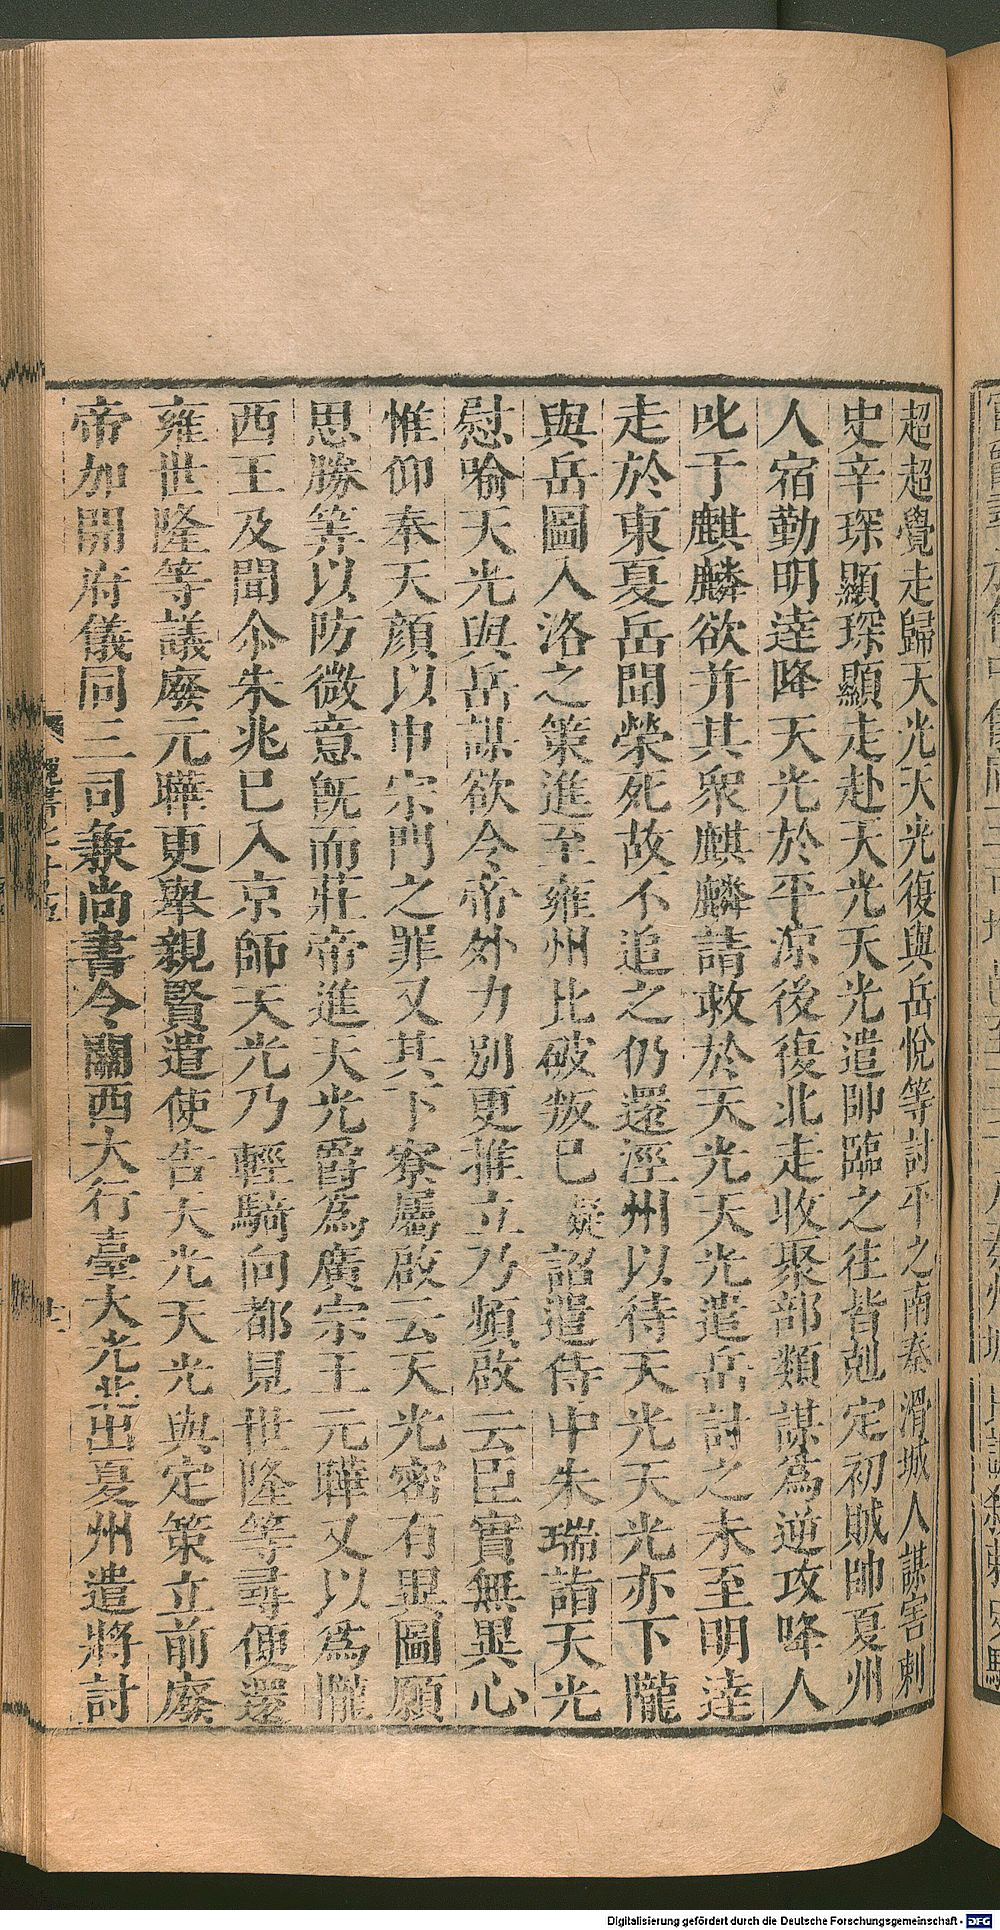 超超覺走歸天光天光復與岳悅等討平之南秦滑城人謀害刺
史辛琛顯琛顯走赴天光天光遣帥臨之往皆剋定初賊帥夏州
人宿勤明達降天光於平涼後復北走收聚部類謀為逆攻降人
叱于麒麟欲并其眾麒麟請救於天光天光遣岳討之未至明達
走於東夏岳聞榮死故不追之仍還涇州以待天光天光亦下隴
與岳圖入洛之策進至雍州北破叛已疑詔遣侍中朱瑞詣天光
慰喻天光與岳謀欲令帝外力別更推立乃頻啟云臣實無異心
惟仰奉天顏以申宗門之罪又其下寮屬啟云天光密有異圖願
思勝筭以防微意既而莊帝進天光爵為廣宗王元曄又以為隴
西王及聞尒朱兆已入京師天光乃輕騎向都見世隆等尋便還
雍世隆等議廢元曄更舉親賢遣使告天光天光與定策立前廢
帝加開府儀同三司兼尚書令關西大行臺天光北出夏州遣將討
魏書七十五
廿一
Digitalisierung gefördert durch die Deutsche Forschungsgemeinschaft - DFG